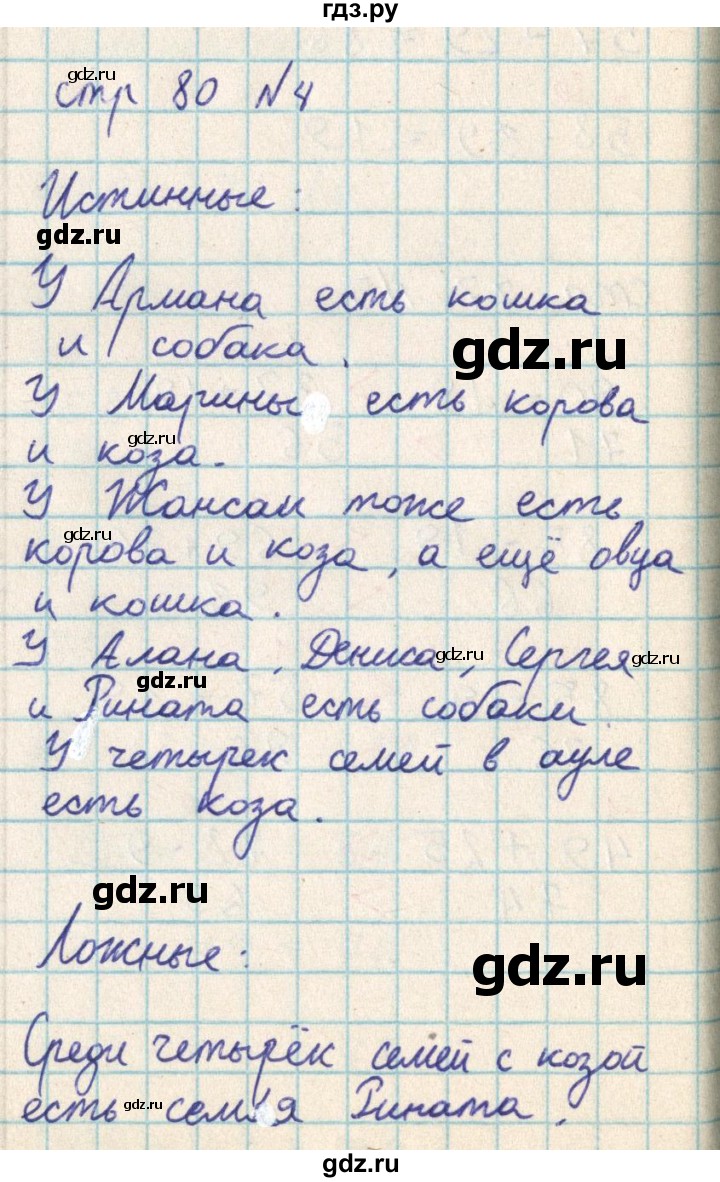 гдз.ру
стр 80 №4
gdz.ru
Истинные:
gdz.ru
У Армана есть кошка
и собака.
gdz.ru
У Марины есть корова
gdz.ru
и коза.
У Жансаи тоже есть
gdz.ru
корова и коза, а ещё овца
и кошка.
У Алана, Дениса, Сергея
gdz.ru
gdz.ru
gdz.ru
и Рината есть собаки.
У четырек семей в ауле
есть коза.
gdz.ru
Ложные:
gdz.ru
Среди четырёк семей с козой
есть семья Рината.
gdz.ru
gdz.ru